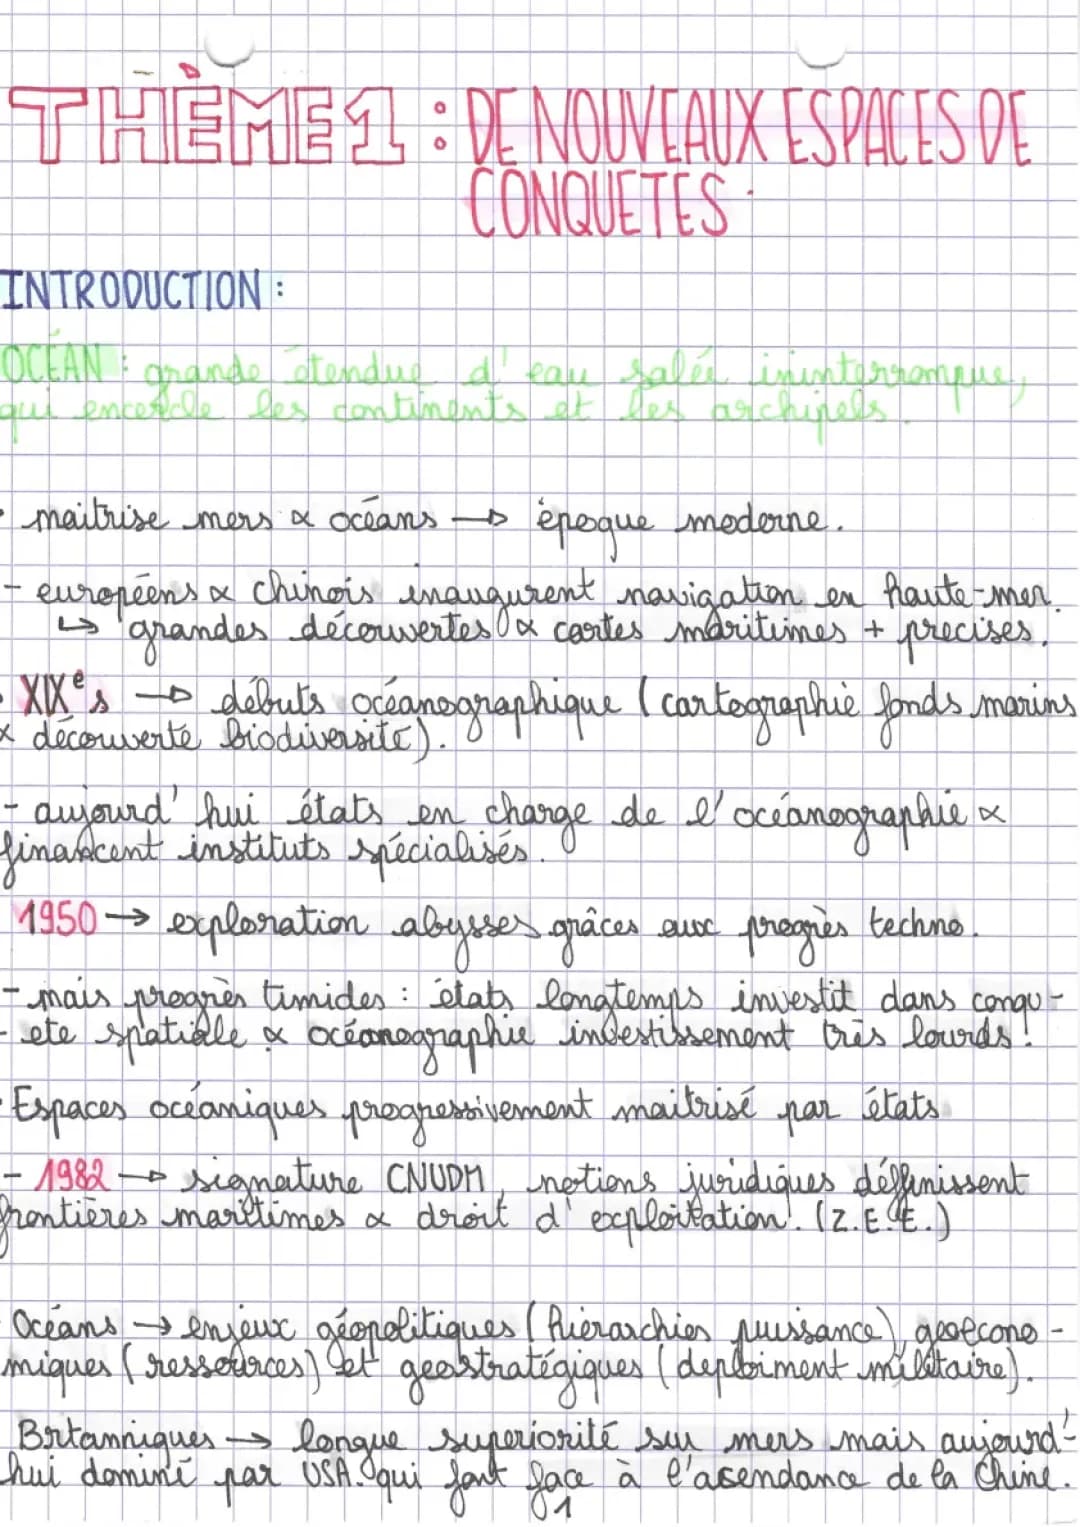 THÈME 1 : DE NOUVEAUX ESPACES DE
CONQUETES.
INTRODUCTION :
OCÉAN : grande étendue d'eau salée ininterrompue,
qui encercle les continents et les archipels.
- maitrise mers & océans → époque moderne.
- européens & chinois inaugurent navigation en haute-mer.
↳ grandes découvertes & cartes maritimes + precises.
- XIXe s → débuts océanographique (cartographie fonds marins
& découverte biodiversité).
- aujourd'hui états en charge de l'océanographie &
financent instituts spécialisés.
1950 → exploration abysses grâces aux progrès techno.
- mais progrès timides : états longtemps investit dans conqu-
-ete spatiale & océanographie investissement très lourds !
- Espaces océaniques progressivement maitrisé par états
- 1982 → signature CNUDM, notions juridiques déffinissent
frontières maritimes & droit d'exploitation. (Z.E.E.)
Océans → enjeux géopolitiques (hiérarchies puissance), geoécono-
miques (ressources) et geostratégiques (deploiment militaire).
Britanniques → longue superiorité sur mers mais aujourd'-
hui dominé par USA qui font face à l'asendance de la Chine.
1